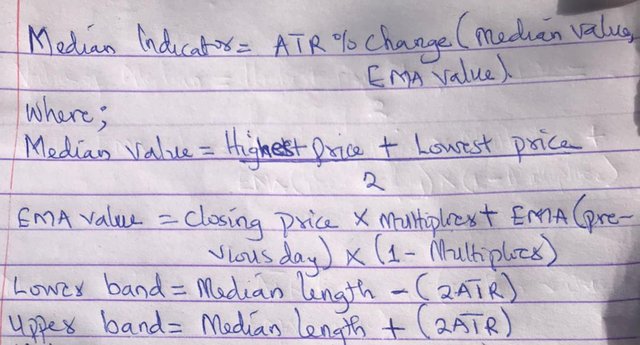 Median Indicator = ATR % Change (median value,
EMA value).
Where;
Median value = Highest price + Lowest price
2
EMA value = closing price x multiplier + EMA (pre-
vious day) x (1 - Multiplier)
Lower band = Median length - (2ATR)
Upper band = Median length + (2ATR)